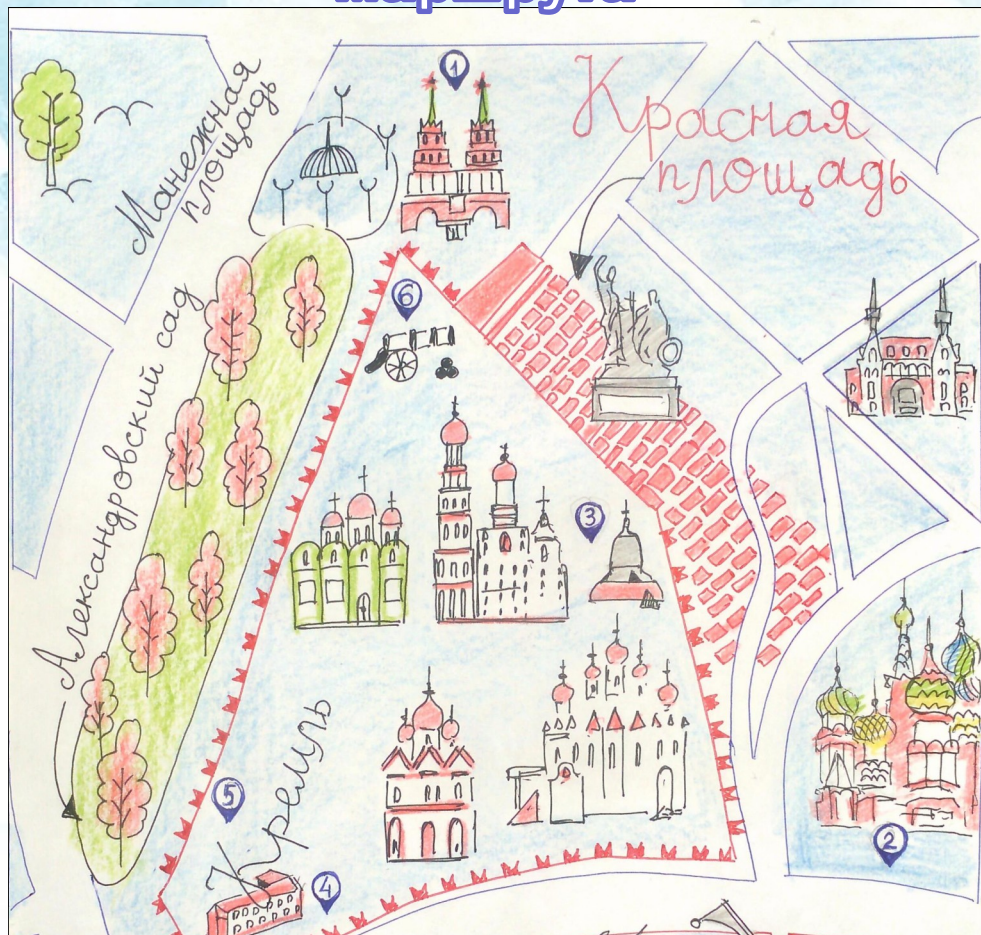 маршрута
Манежная
площадь
1
Красная
площадь
6
Александровский сад
3
Кремль
5
4
2